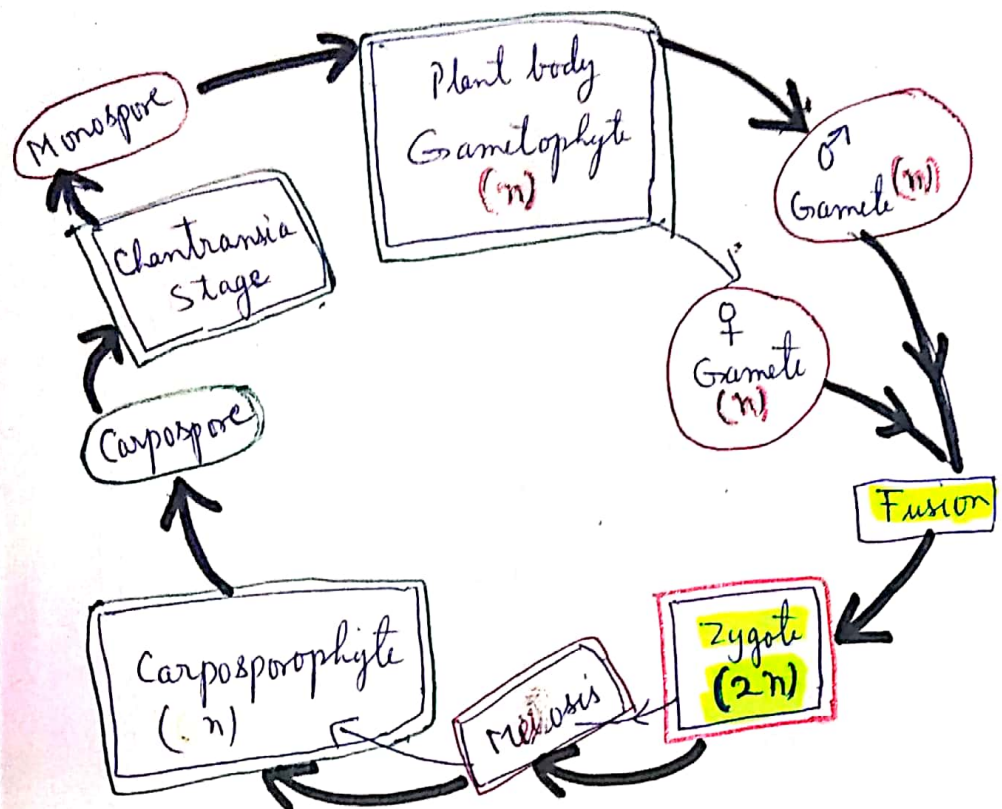 Plant body
Gametophyte
(n)
♂
Gamete (n)
♀
Gamete
(n)
Fusion
Zygote
(2n)
Meiosis
Carposporophyte
( n)
Carpospore
Chantransia
Stage
Monospore